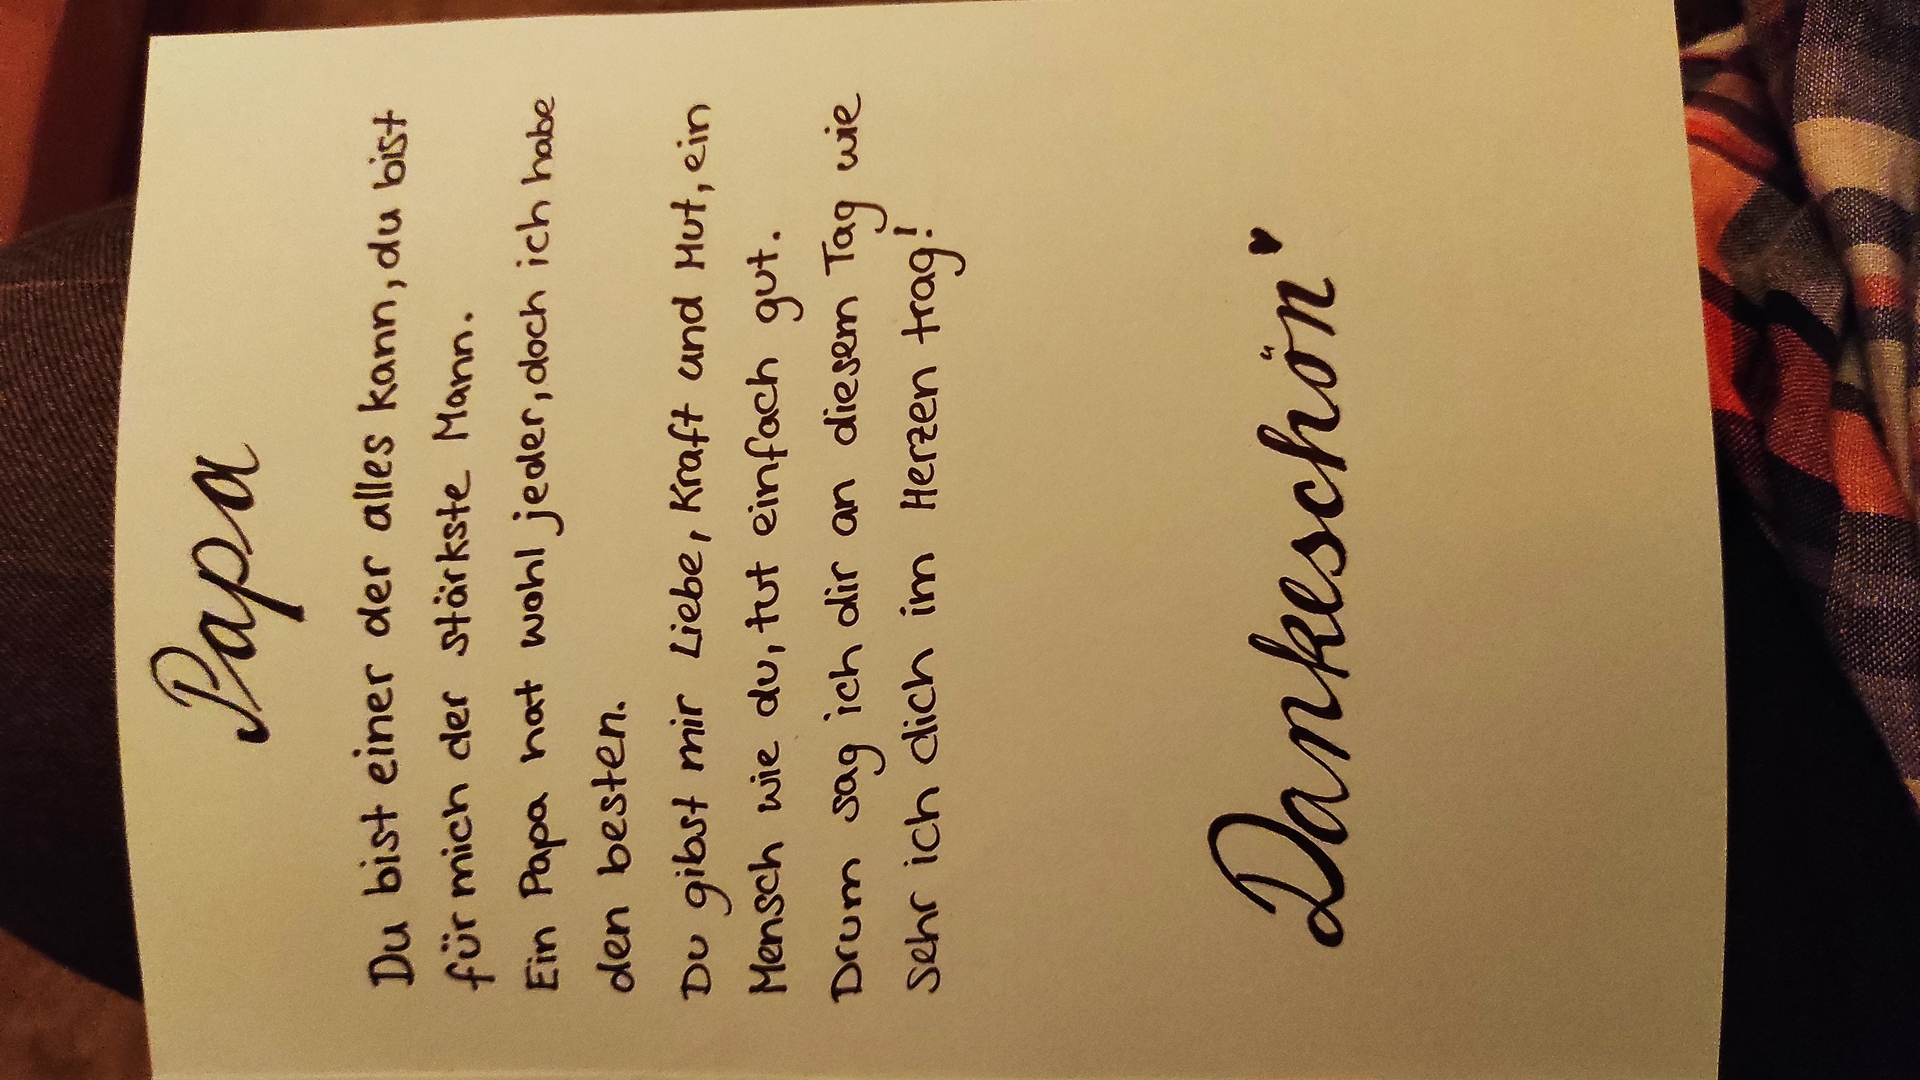 Papa
Du bist einer der alles kann, du bist
für mich der stärkste Mann.
Ein Papa hat wohl jeder, doch ich habe
den besten.
Du gibst mir Liebe, Kraft und Mut, ein
Mensch wie du, tut einfach gut.
Drum sag ich dir an diesem Tag wie
sehr ich dich im Herzen trag!
Dankeschön ♥